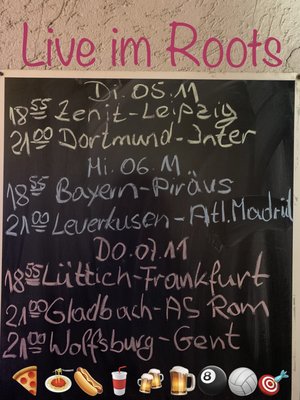 Live im Roots
Di. 05.11
18 55 Zenit-Leipzig
21 00 Dortmund-Inter
Mi. 06.11
18 55 Bayern-Piräus
21 00 Leverkusen-Atl.Madrid
DO.07.11
18 55 Lüttich-Frankfurt
21 00 Gladbach-AS Rom
21 00 Wolfsburg-Gent
8